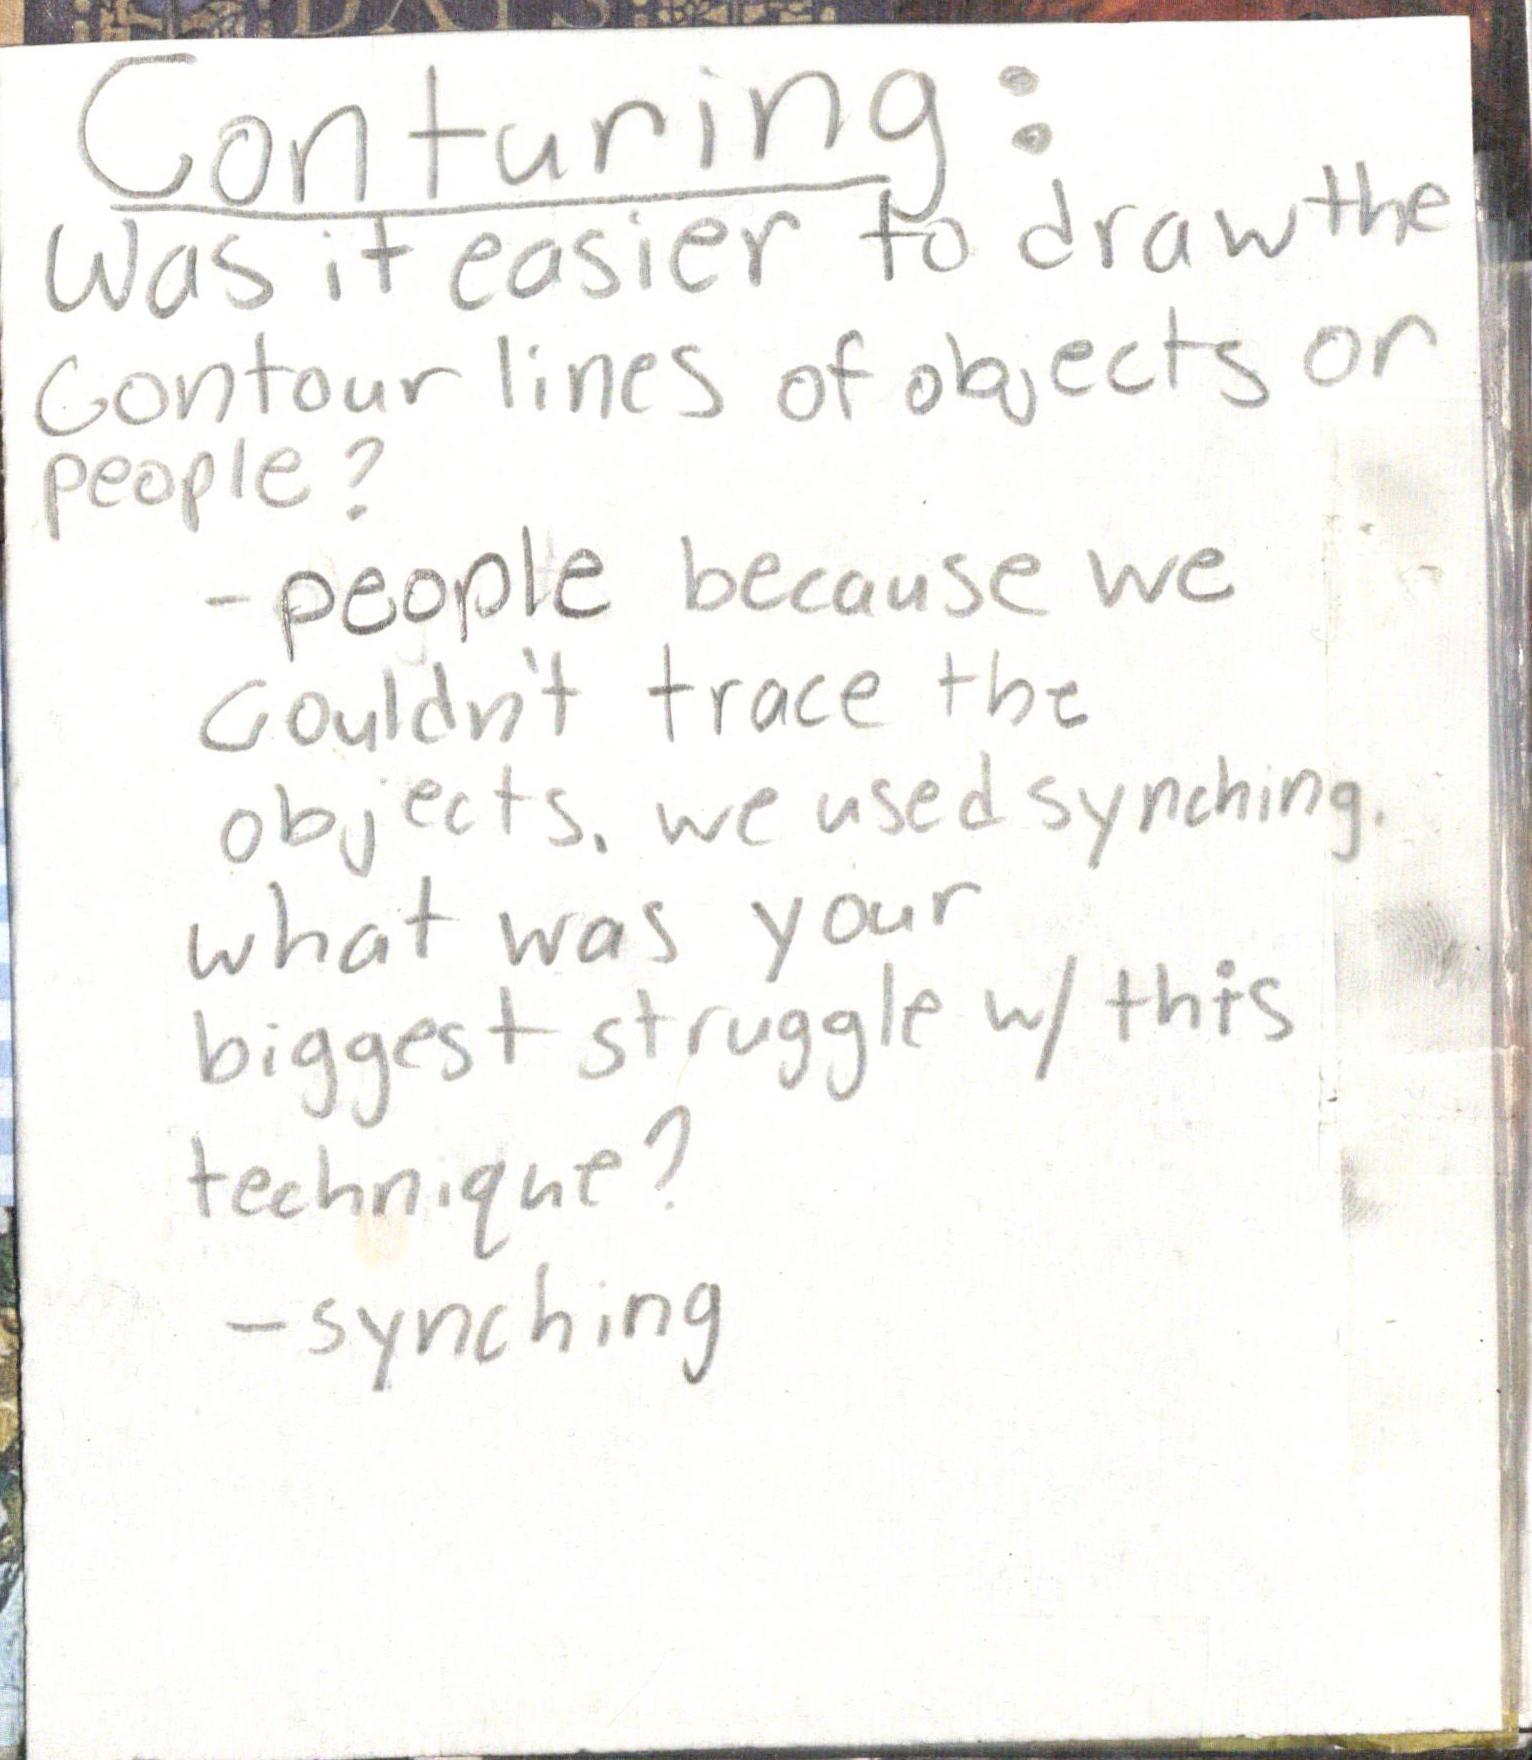 DAYS
Conturing:
Was it easier to draw the
contour lines of objects or
people?
-people because we
couldn't trace the
objects. we used synching.
what was your
biggest struggle w/ this
technique?
-synching